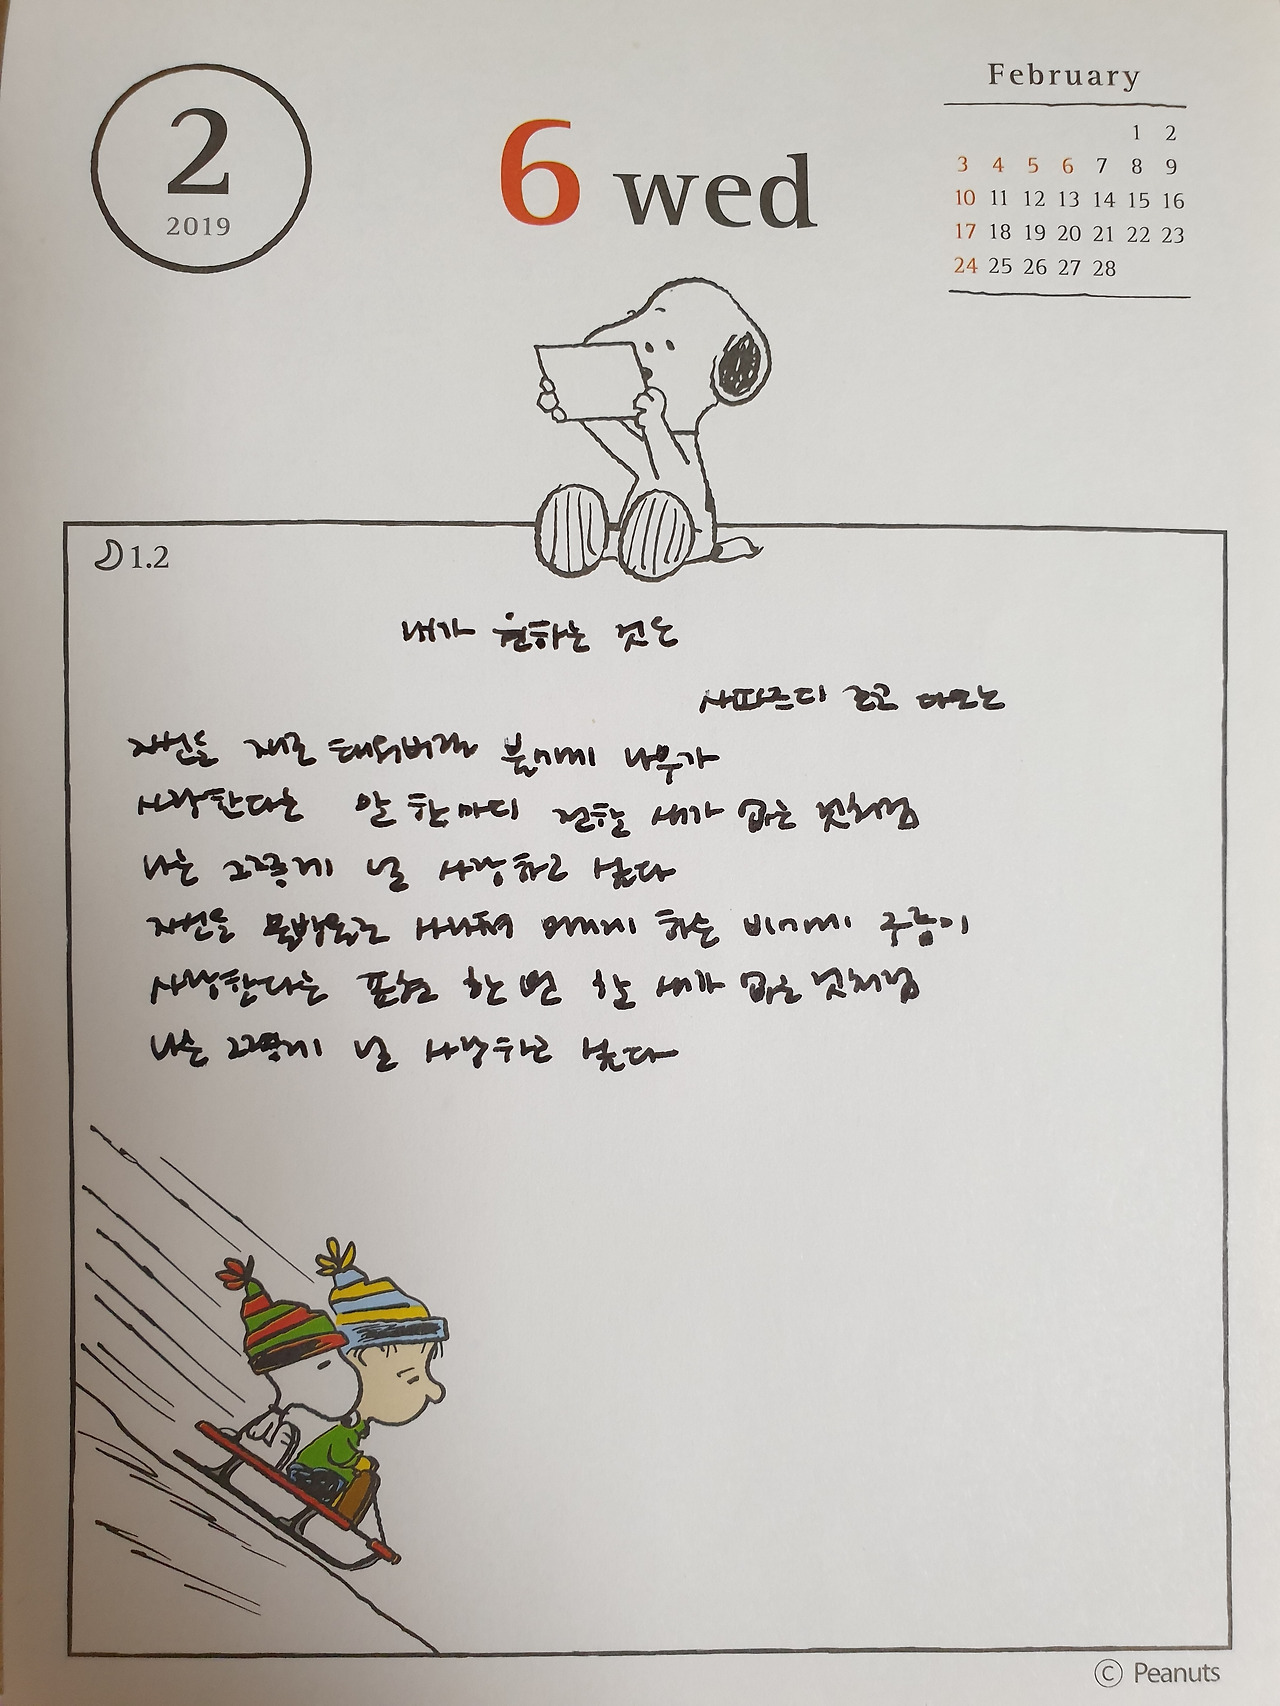 2
2019
6 wed
February
1 2
3 4 5 6 7 8 9
10 11 12 13 14 15 16
17 18 19 20 21 22 23
24 25 26 27 28
1.2
내가 원하는 것은
사파르디 조코 다모노
자신을 재로 태워버릴 불에게 나무가
사랑한다는 말 한 마디 전할 새가 없는 것처럼
나는 그렇게 널 사랑하고 싶다
자신을 물방울로 하나에게 하는 비에게 구름이
사랑한다는 표현 한 번 할 새가 없는 것처럼
나는 그렇게 널 사랑하고 싶다
© Peanuts